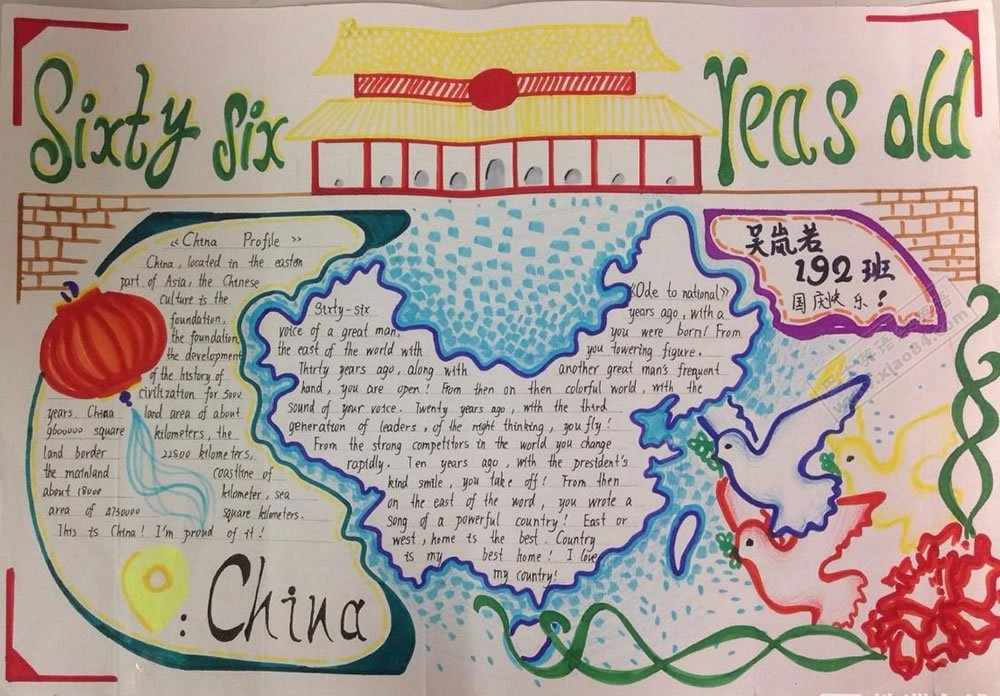 Sixty six
Yeas old
《China Profile》
China, located in the easten
part of Asia, the Chinese
culture is the
foundation,
the foundation,
the development
of the history of
civilization for 5000
years. China land area of about
9600000 square kilometers, the
land border 22500 kilometers,
the mainland coastline of
about 18000 kilometer, sea
area of 4730000 square kilometers.
This is China! I'm proud of it!
: China
《Ode to national》
Sixty-six years ago, with a
voice of a great man, you were born! From
the east of the world with you towering figure.
Thirty years ago, along with another great man's frequent
hand, you are open! From then on then colorful world, with the
sound of your voice. Twenty years ago, with the third
generation of leaders, of the night thinking, you fly!
From the strong competitors in the world you change
rapidly. Ten years ago, with the president's
kind smile, you take off! From then
on the east of the word, you wrote a
song of a powerful country! East or
west, home is the best. Country
is my best home! I love
my country!
吴岚若
192班
国庆快乐!